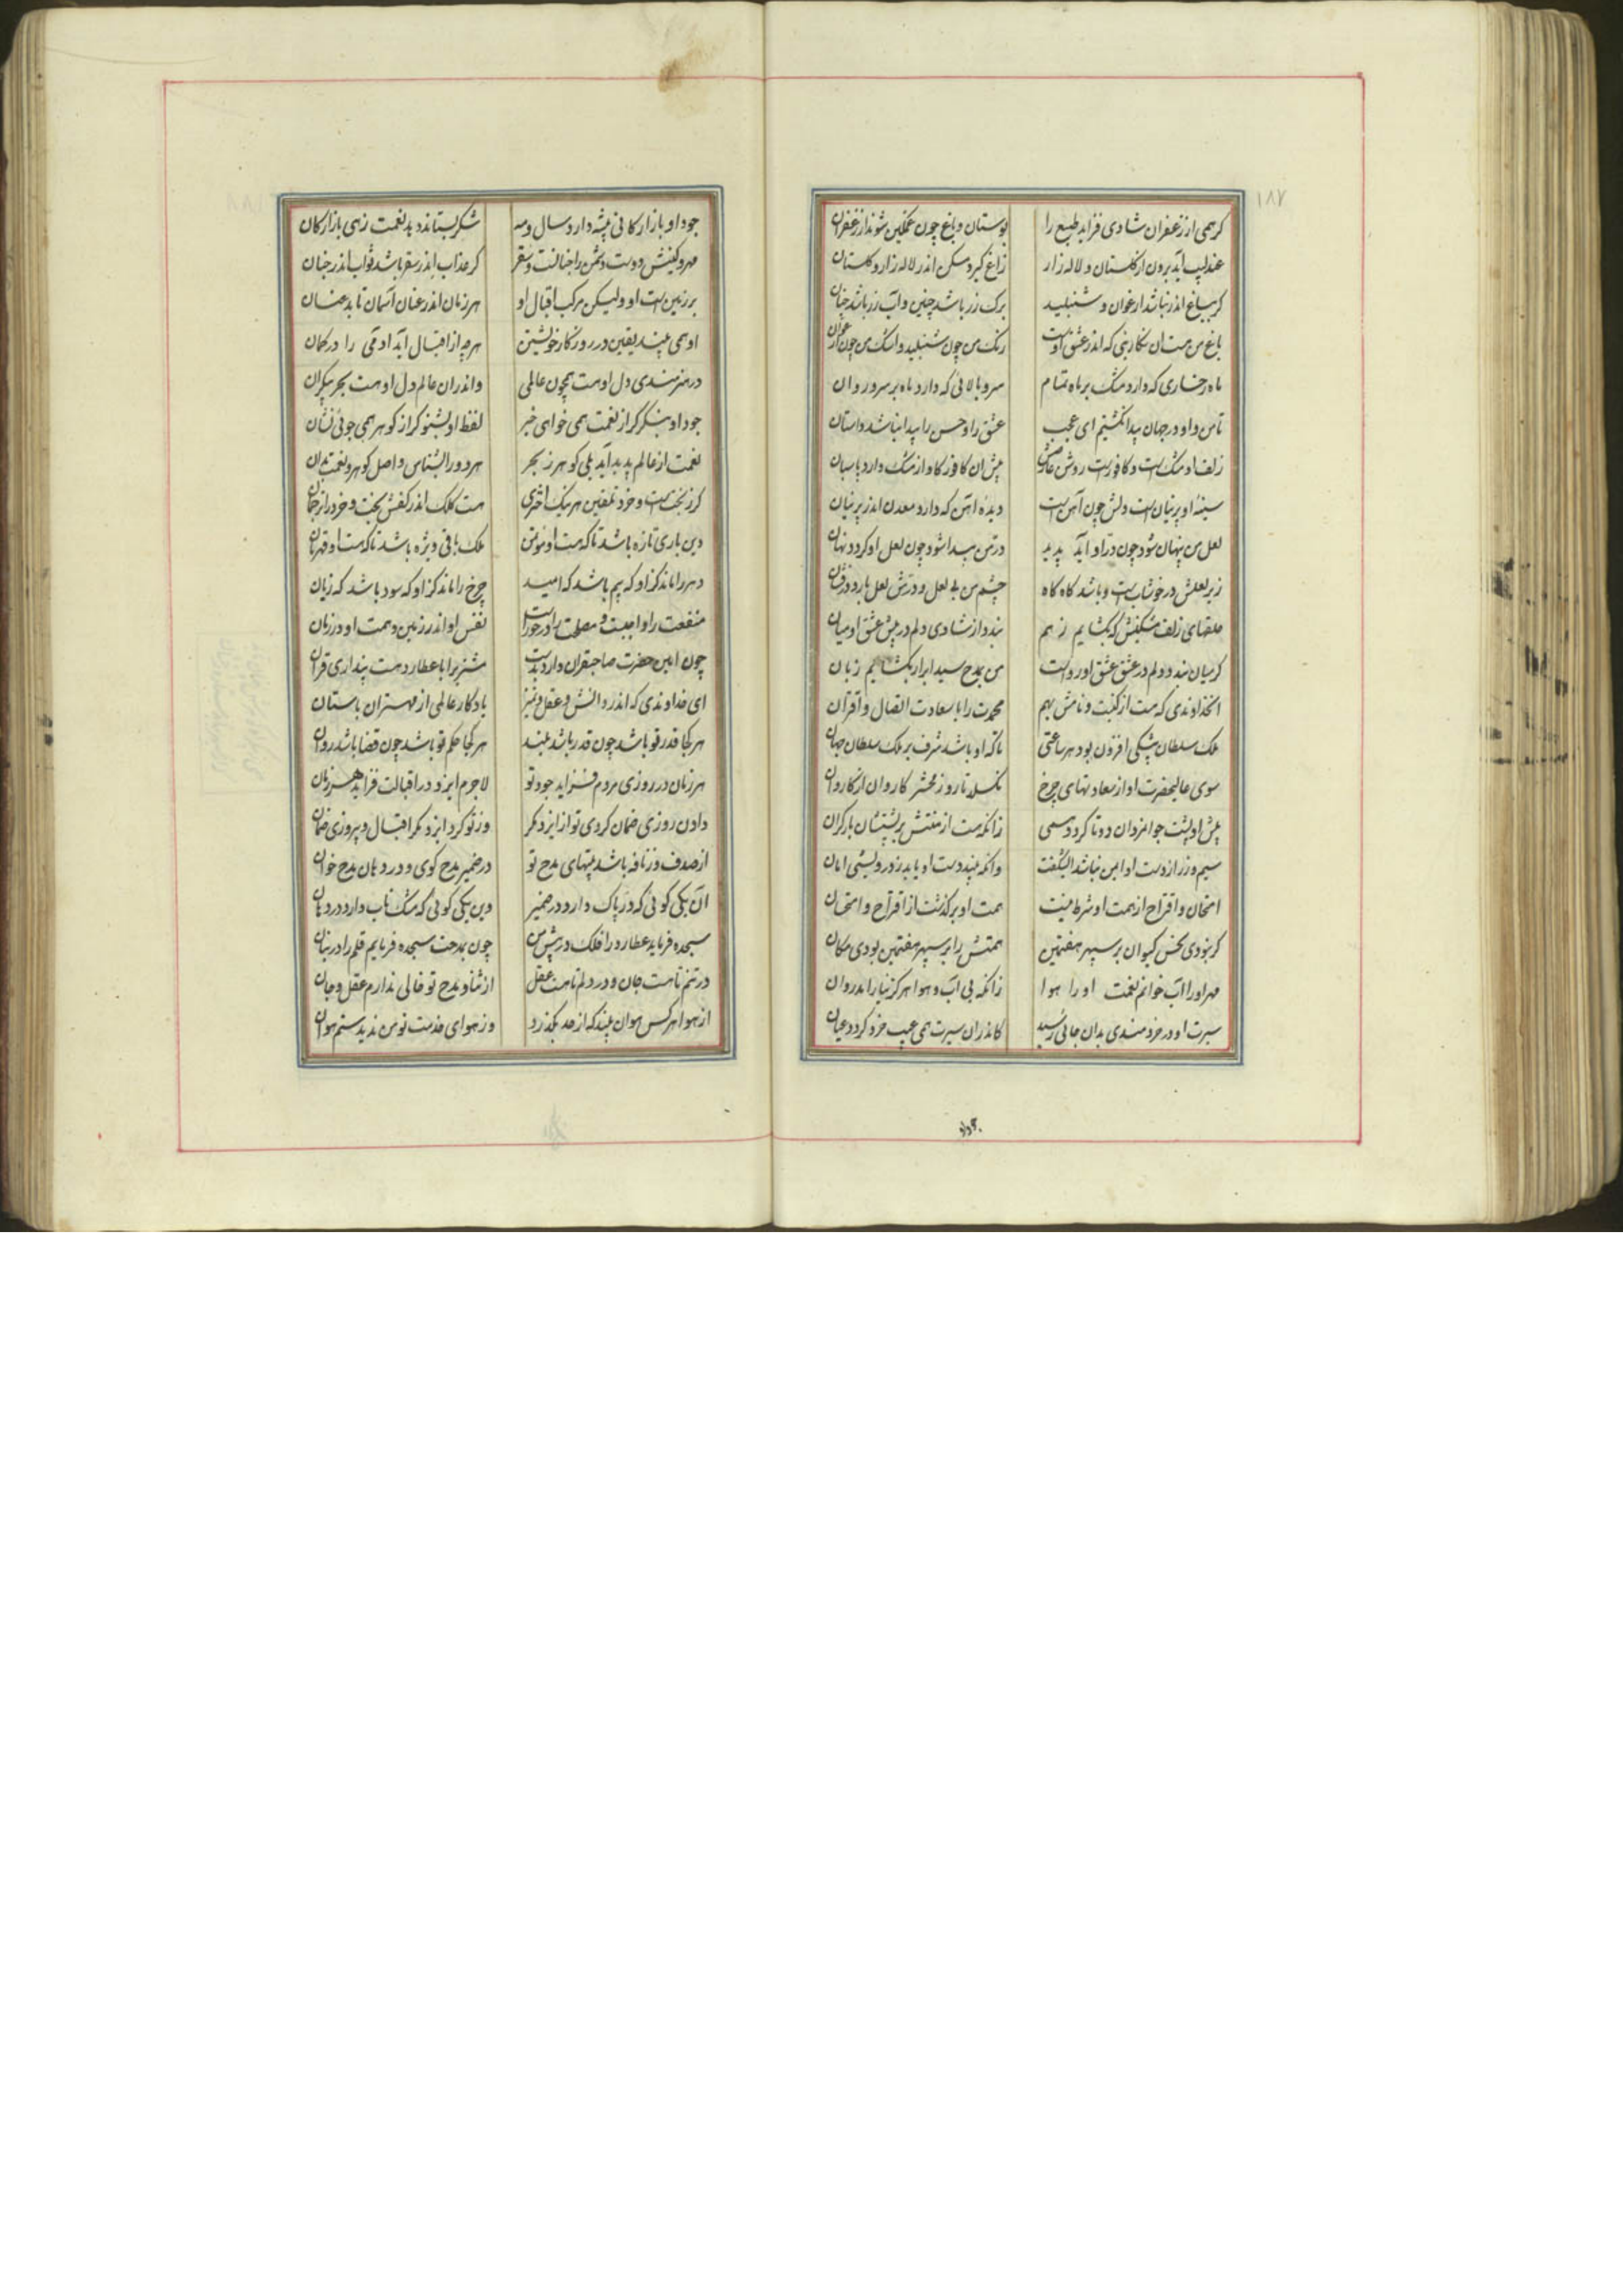 ۱۸۷
گرهمی از زعفران شادی فزاید طبع را بوستان و باغ چون غمگین شوند از زعفران
عندلیب آید برون از گلستان و لاله زار زاغ گیرد مسکن اندر لاله زار و گلستان
گر بباغ اندر نباشد ارغوان و شنبلید برک زر باشد چنین و آب زر باشد چنان
باغ من هست آن نگارینی که اندر عشق اوست رنک من چون شنبلید و اشک من چون ارغوان
ماه رخساری که دارد مشک بر ماه تمام سرو بالائی که دارد ماه بر سرو روان
تا من و او در جهان پیدا نگشتیم ای عجب عشق را و حسن را پیدا نباشد داستان
زلف او مشک است و کافور است روشن عارضش پیش آن کافور کاو از مشک دارد پاسبان
سینهٔ او پرنیان است و دلش چون آهن است دیدهٔ آهن که دارد معدن اندر پرنیان
لعل من پنهان شود چون در او آید پدید در من پیدا شود چون لعل او گردد نهان
زیر لعلش در خوشاب است و باشد گاه گاه چشم من بر لعل و درش لعل بارد درفشان
حلقهای زلف مشکینش که بگشایم ز هم بندد از شادی دلم در پیش عشق او میان
گر میان بندد دلم در عشق عشق او رواست من بمدح سید ابرار بگشایم زبان
آنخداوندی که هست از کنیت و نامش بهم محمدت را با سعادت اتصال و اقتران
ملک سلطان بیشکی افزون بود هر ساعتی تا که او باشد شرف بر ملک سلطان جهان
سوی عالیحضرت او از سعادتهای چرخ نگسلد تا روز محشر کاروان از کاروان
پیش او پشت جوانمردان دوتا گردد همی زانکه هست از منتش بر پشتشان بار گران
سیم و زر از دست او ایمن نباشد ایشگفت وانکه بیند دست او یابد ز درویشی امان
امتحان و اقتراح از همت او شرط نیست همت او برگذشت از اقتراح و امتحان
گر نبودی نحس کیوان بر سپهر هفتمین همتش را بر سپهر هفتمین بودی مکان
مهر او را آب خوانم نعمت او را هوا زانکه بی آب و هوا هرگز نیارامد روان
سیرت او در خردمندی بدان جائی رسید کاندران سیرت همی عیب خرد گردد عیان
جود او بازارگانی پیشه دارد سال و مه شکر بستاند دهد نعمت زهی بازارگان
مهر و کینش دوست و دشمن را جنانست و سقر گر عذاب اندر سقر باشد ثواب اندر جنان
بر زمین است او ولیکن مرکب اقبال او هر زمان اندر عنان آسمان تابد عنان
او همی بیند یقین در روزگار خویشتن هرچه از اقبال آید آدمی را در گمان
در هنرمندی دل او هست همچون عالمی واندران عالم دل او هست بحر بیکران
جود او بنگر گر از نعمت همی خواهی خبر لفظ او بشنو گر از گوهر همی جوئی نشان
نعمت از عالم پدید آید بلی گوهر ز بحر هر دو را بشناس و اصل گوهر و نعمت بدان
گر ز بخت است و خرد تلقین هر نیک اختری هست کلک اندر کفش بخت و خرد را ترجمان
دین باری تازه باشد تا که هست او مؤتمن ملک باقی ویژه باشد تا که هست او قهرمان
دهر را ماند گر او که بیم باشد که امید چرخ را ماند گر او که سود باشد که زیان
منفعت را واجبست و مصلحت را درخورست نفس او اندر زمین و همت او در زمان
چون امین حضرت صاحبقران دارد بدست مشتری را با عطارد هست پنداری قران
ای خداوندی که اندر دانش و عقل و تمیز یادگار عالمی از مهتران باستان
هر کجا قدر تو باشد چون قدر باشد بلند هر کجا حکم تو باشد چون قضا باشد روان
هر زمان در روزی مردم فزاید جود تو لاجرم ایزد در اقبالت فزاید هر زمان
دادن روزی ضمان کردی تو از ایزد مگر وز تو کرد ایزد مگر اقبال و پیروزی ضمان
از صدف وز نافه باشد بیتهای مدح تو در ضمیر مدح گوی و در دهان مدح خوان
آن یکی گوئی که در پاک دارد در ضمیر وین یکی گوئی که مشک ناب دارد در دهان
سجده فرماید عطارد را فلک در پیش من چون بمدحت سجده فرمایم قلم را در بنان
در تنم تا هست جان و در دلم تا هست عقل از ثنا و مدح تو خالی ندارم عقل و جان
از هوا هر کس هوان بیند که از حد بگذرد وز هوای خدمت تو من ندیدستم هوان